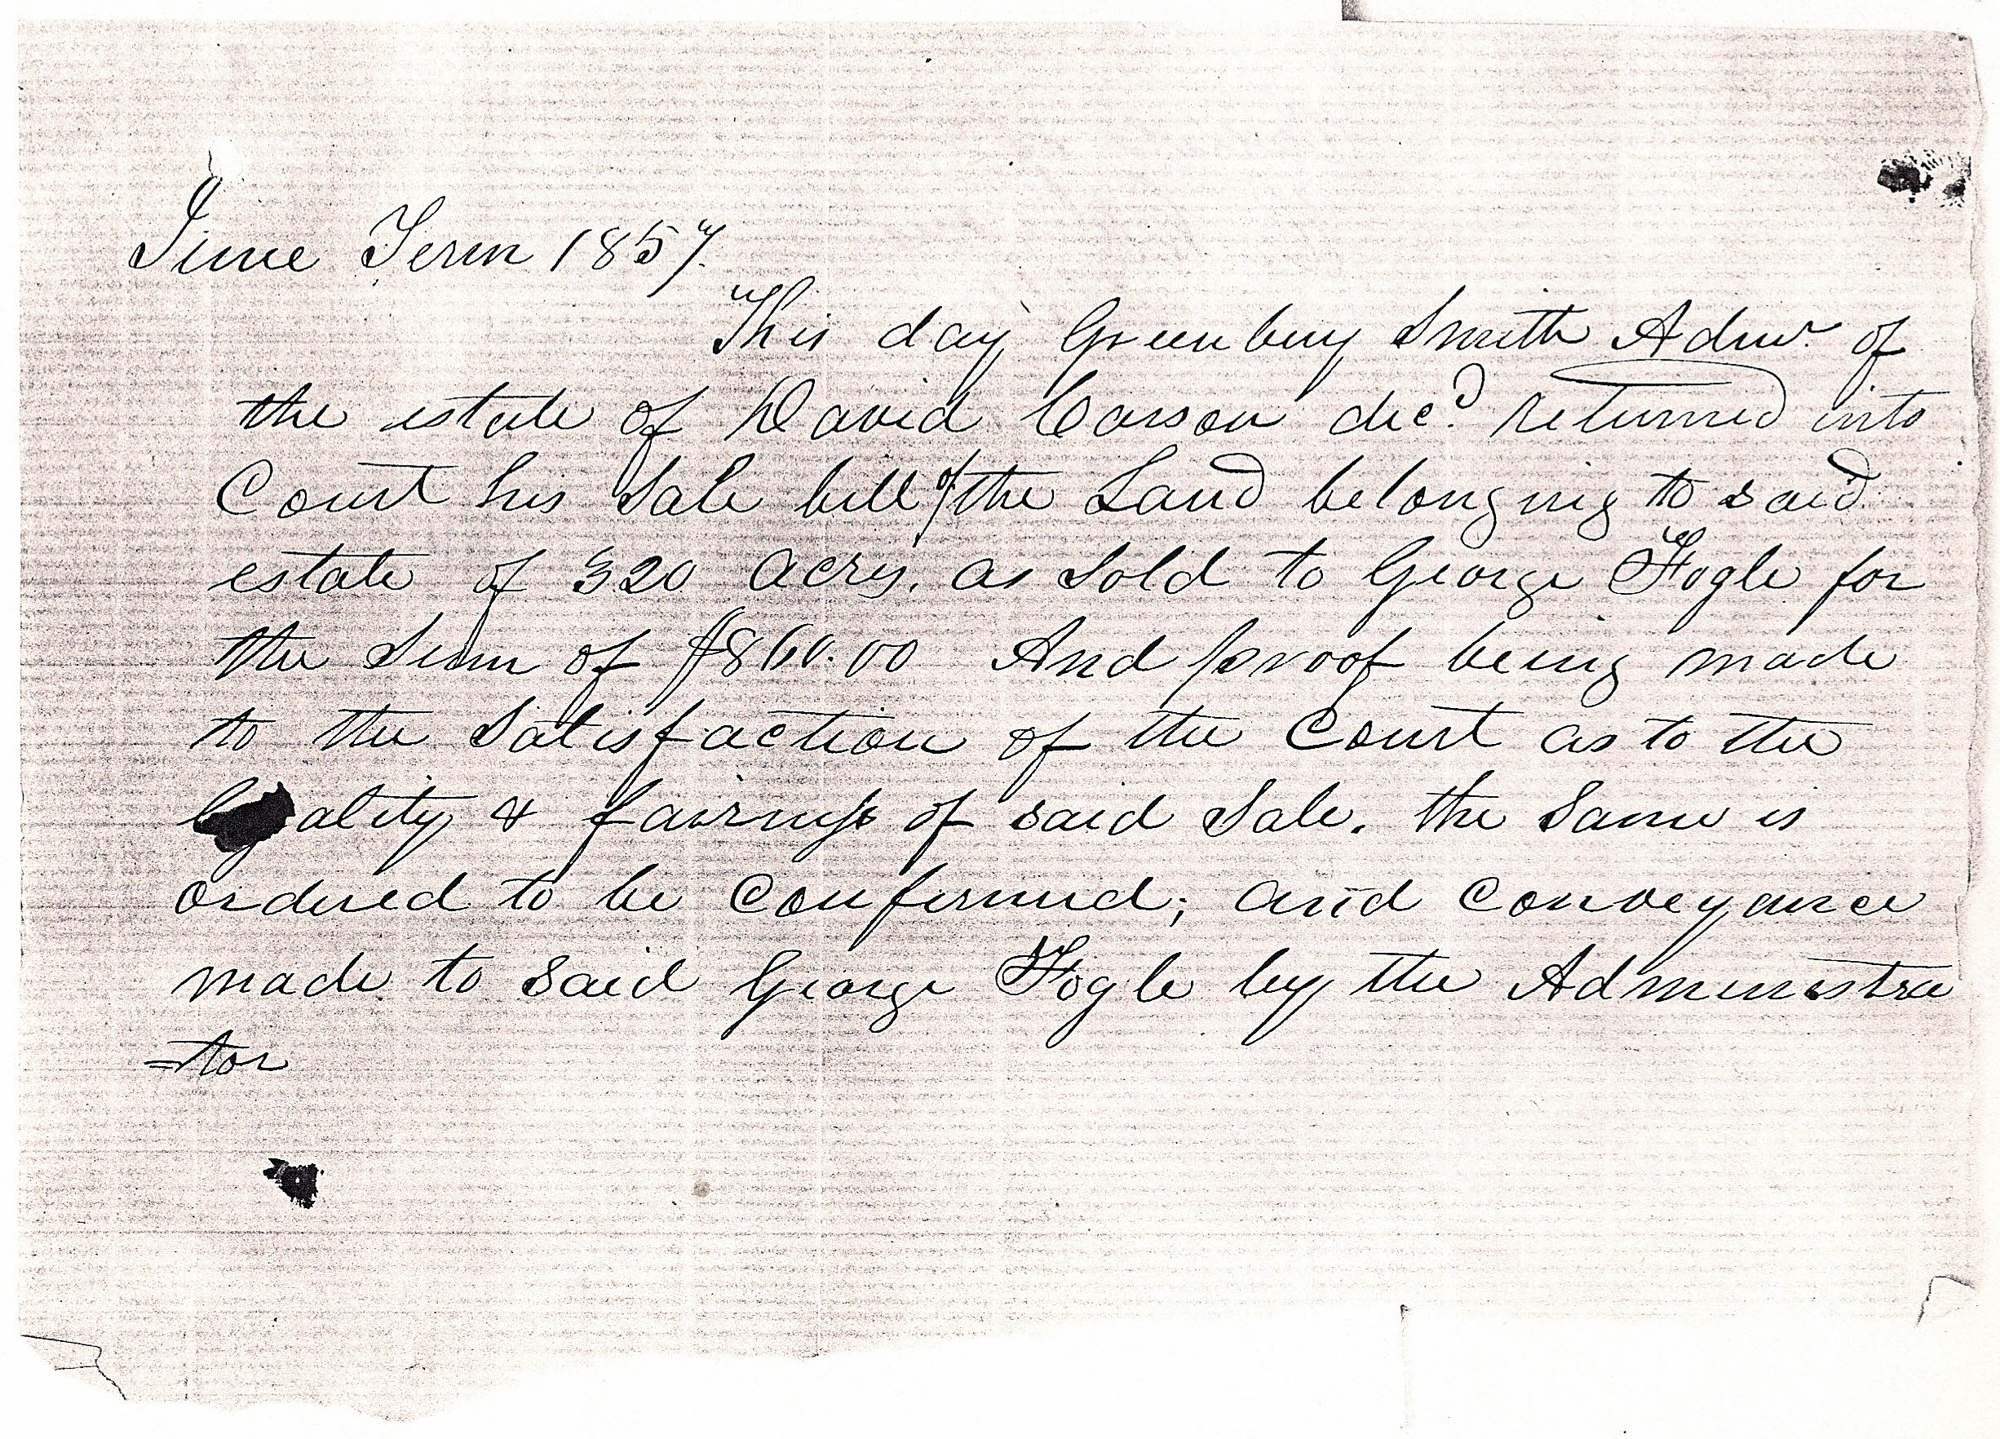 June Term 1857.
This day Greenbury Smith Admr. of
the estate of David Carson decd. returned into
Court his Sale bill of the Land belonging to said
estate of 320 acres. as Sold to George Fogle for
the Sum of $860.00 And proof being made
to the Satisfaction of the Court as to the
legality & fairness of said Sale. the Same is
ordered to be Confirmed; and Conveyance
made to said George Fogle by the Administra
=tor